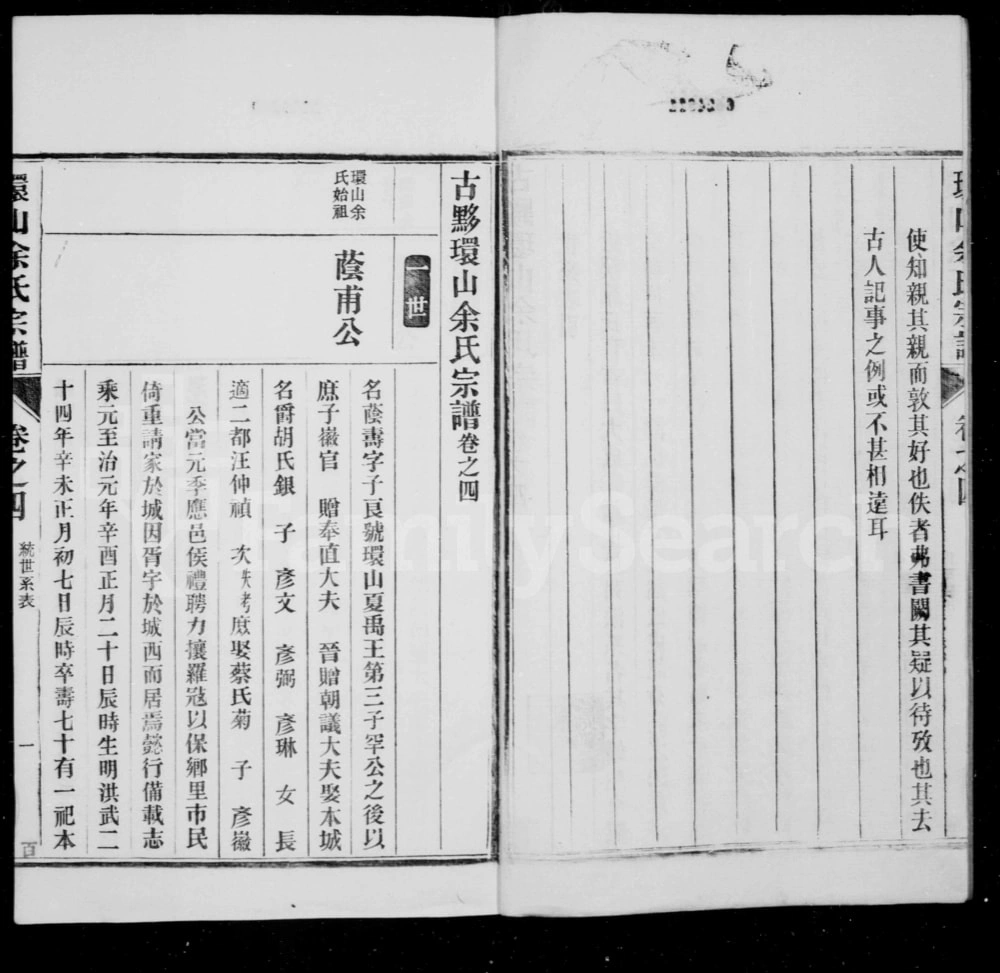 使知親其親而敦其好也佚者弗書闕其疑以待攷也其去
古人記事之例或不甚相遠耳
古黟環山余氏宗譜卷之四
一世
環山余
氏始祖
蔭甫公
名蔭壽字子良號環山夏禹王第三子罕公之後以
庶子徽官 贈奉直大夫 晉贈朝議大夫娶本城
名爵胡氏銀 子 彥文 彥弼 彥琳 女 長
適二都汪仲禎 次失考庶娶蔡氏菊 子 彥徽
公當元季應邑侯禮聘力攘羅寇以保鄉里市民
倚重請家於城因胥宇於城西而居焉懿行備載志
乘元至治元年辛酉正月二十日辰時生明洪武二
十四年辛未正月初七日辰時卒壽七十有一祀本
環山余氏宗譜
卷之四
統世系表
一
百
FamilySearch